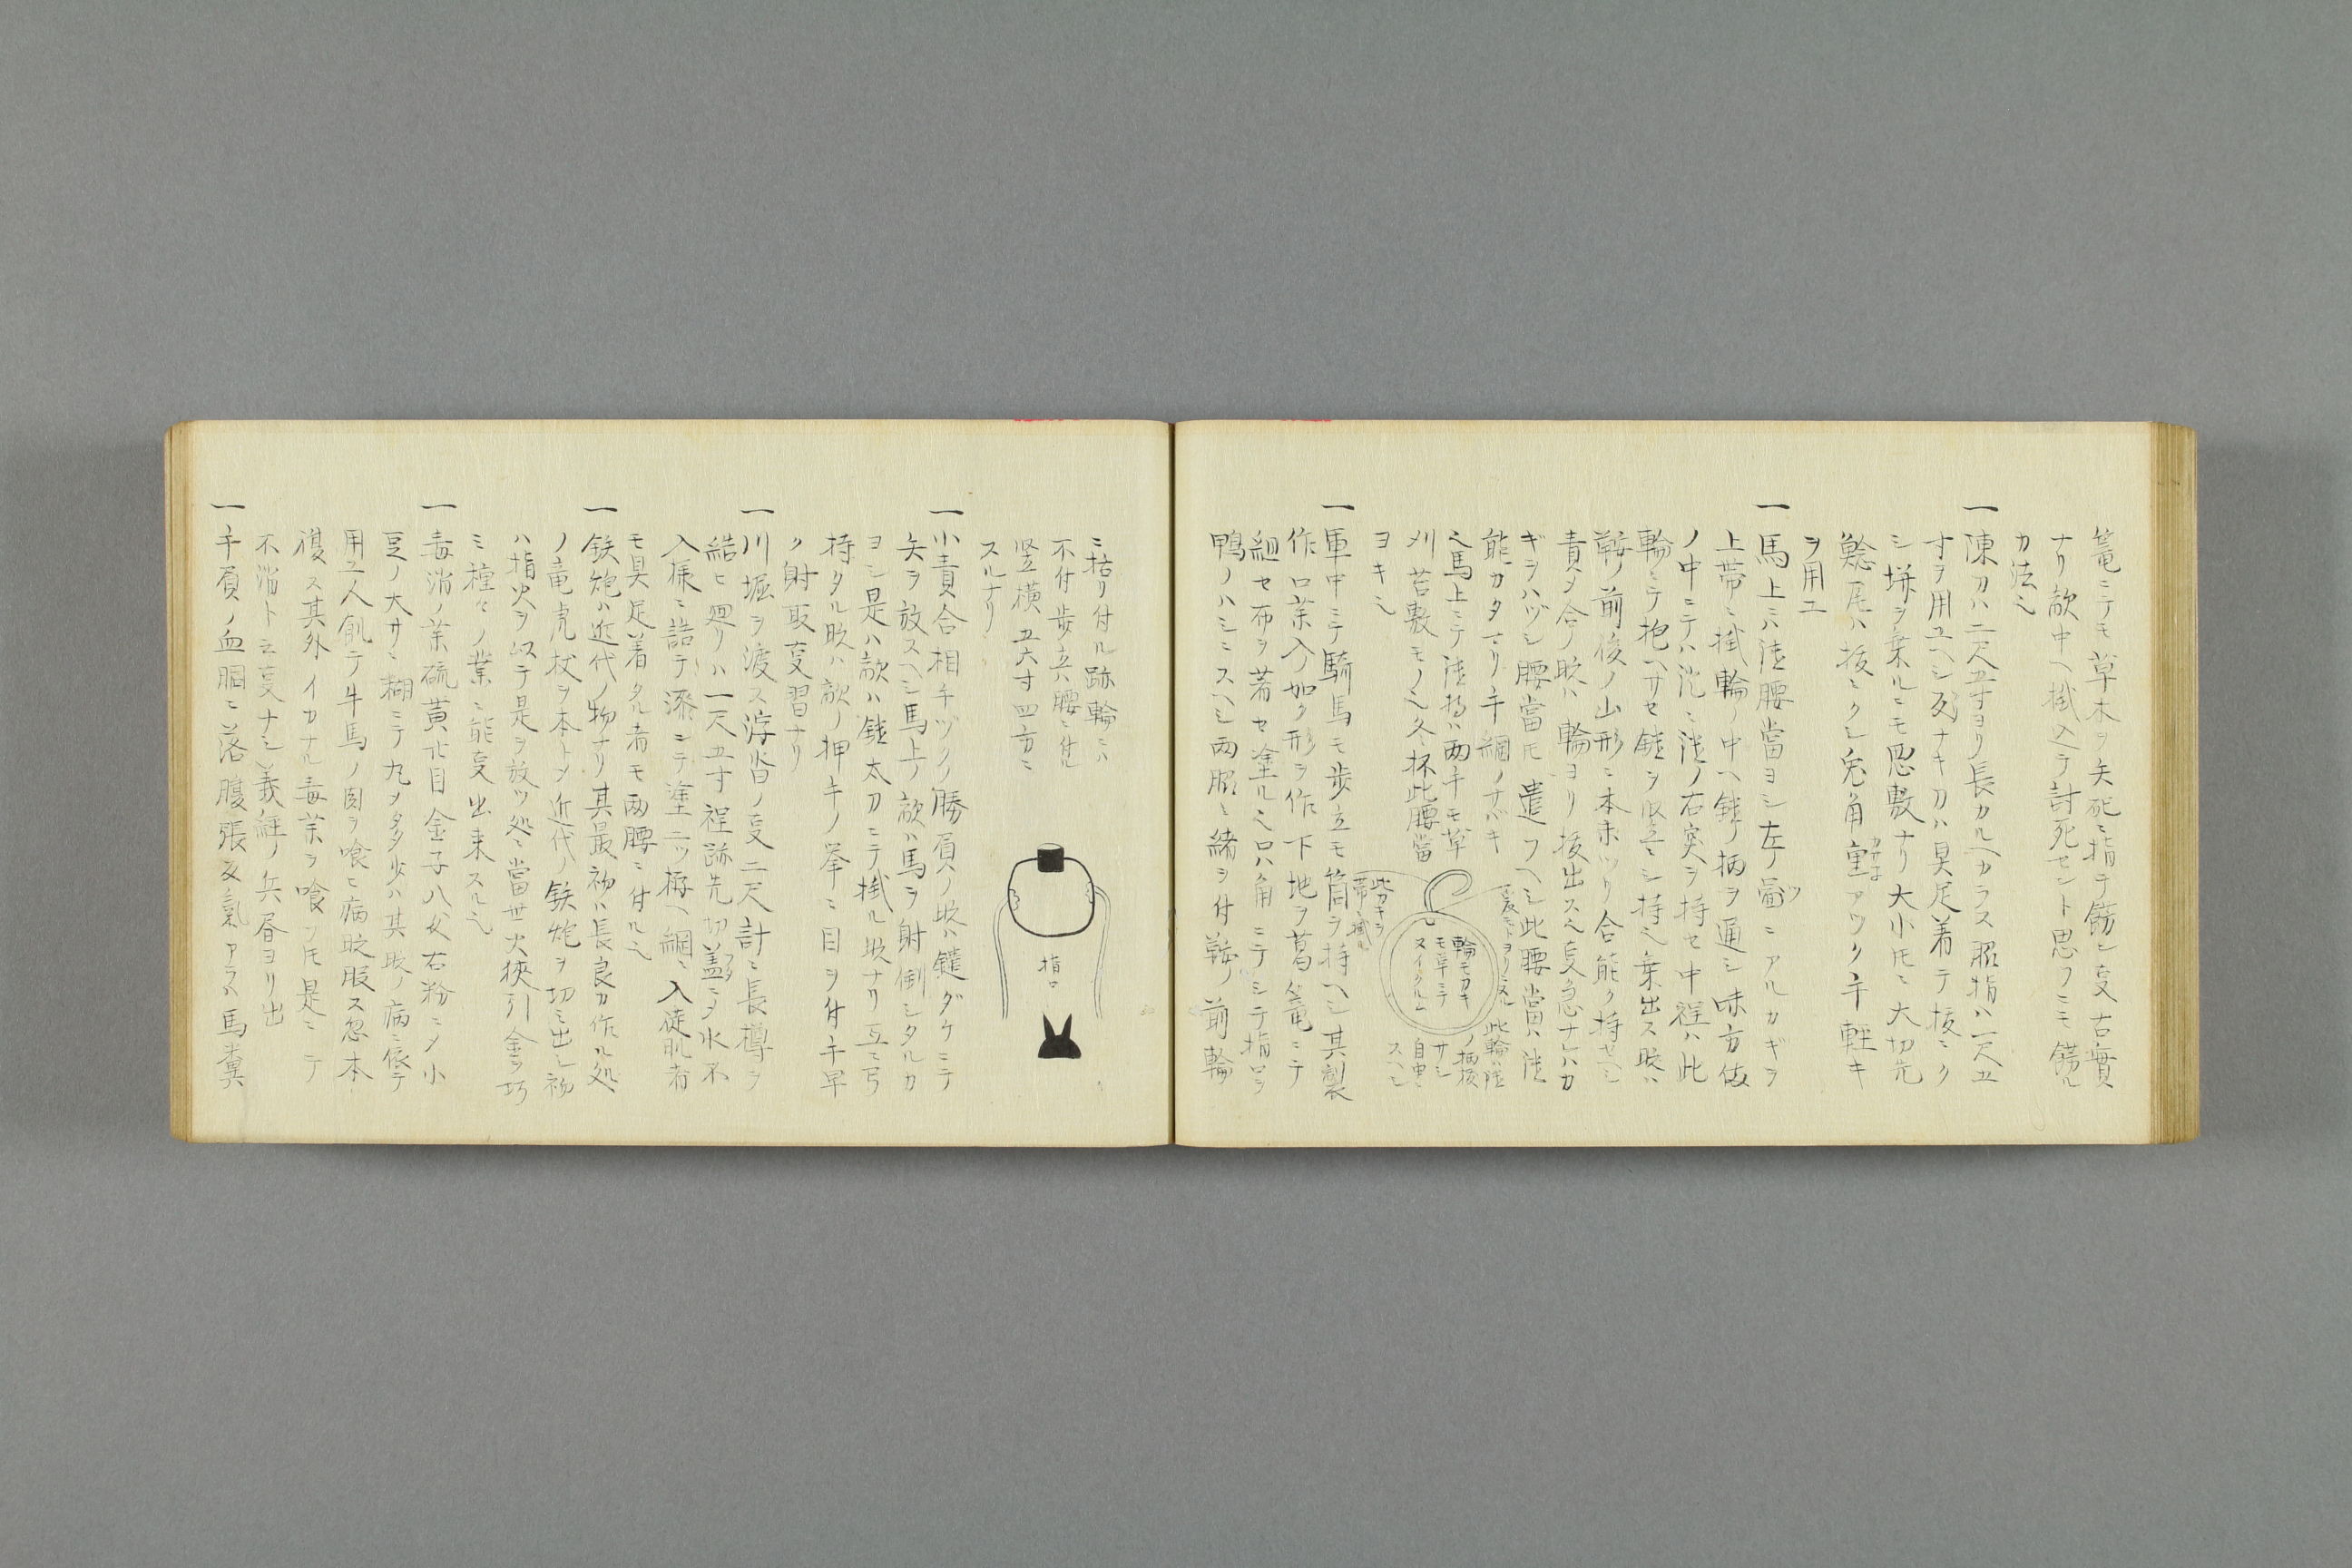 篭ニテモ草木ヲ矢死ニ指テ餝シ叓古實
ナリ敵中ヘ掛込テ討死セント思フニモ餝ル
カ法也
一陳刀ハ二尺五寸ヨリ長カルヘカラス脇指ハ一尺五
寸ヲ用ユヘシ反ナキ刀ハ具足着テ抜ニク
シ拼ヲ乗ルニモ悪敷ナリ大小氏ニ大切先
鯰尾ハ抜ニクシ兎角重アツク手軽キ
ヲ用ユ
一馬上ニハ鎗腰當ヨシ左ノ圖ニアルカギヲ
上帯ニ掛輪ノ中ヘ鎗ノ柄ヲ通シ味方備
ノ中ニテハ沈ニ鎗ノ石突ヲ持セ中程ハ此
輪ニテ抱ヘサセ鎗ヲ竪ニシ持ヘ乗出ス時ハ
鞍ノ前後ノ山形ニ本末ツリ合能ク持セヘシ
責メ合ノ時ハ輪ヨリ抜出スヘシ叓急ナレハカ
ギヲハヅシ腰當氏遣フヘシ此腰當ハ鎗
能カタマリ手綱ノサバキ
也馬上ニテ鎗持ハ両手モ草
刈苔敷モノ也冬杯此腰當
ヨキ也
此カキヲ
帯ニ掛ル
輪モカキ
モ革ニテ
ヌイクルム
此輪ハ鎗
ノ柄抜
サシ
自由ニ
スヘシ
一軍中ニテ騎馬モ歩立モ筒ヲ持ヘシ其製
作口薬入ノ如ク形ヲ作下地ヲ葛篭ニテ
組セ布ヲ着セ塗ル也口ハ角ニテシテ指口ヲ
鴨ノハシニスヘシ両脇ニ緒ヲ付鞍ノ前輪
ニ括リ付ル跡輪ニハ
不付歩立ハ腰ニ付ル
竪横五六寸四方ニ
スルナリ
指口
一小責合相手ヅクノ勝負ノ時ハ鑓ダケニテ
矢ヲ放スヘシ馬上ノ敵ハ馬ヲ射倒シタルカ
ヨシ是ハ敵ハ鎗太刀ニテ掛ル時ナリ互ニ弓
持タル時ハ敵ノ押手ノ拳ニ目ヲ付手早
ク射取叓習ナリ
一川堀ヲ渡ス浮沓ノ叓二尺計ニ長樽ヲ
結ヒ廻リハ一尺五寸程跡先切蓋ニメ水不
入様ニ詰テ漆ニテ塗二ツ拵ヘ綱ニ入徒肌者
モ具足着タル者モ両腰ニ付ル也
一鉄炮ハ近代ノ物ナリ其最初ハ長良カ作ル処
ノ竜虎杖ヲ本トメ近代ノ鉄炮ヲ切ミ出シ初
ハ指火ヲ以テ是ヲ放ツ処ニ當世火挾引金ヲ巧
ミ種々ノ業ニ能叓出来スル也
一毒消ノ薬硫黄廿目金子八匁右粉ニメ小
豆ノ大サニ糊ニテ丸メ多少ハ其時ノ病ニ依テ
用ユ人飢テ牛馬ノ肉ヲ喰ヒ病時服ス忽本
復ス其外イカナル毒薬ヲ喰フ氏是ニテ
不消ト云叓ナシ義経ノ兵昏ヨリ出
一手負ノ血胴ニ落腹張又氣アラハ馬糞